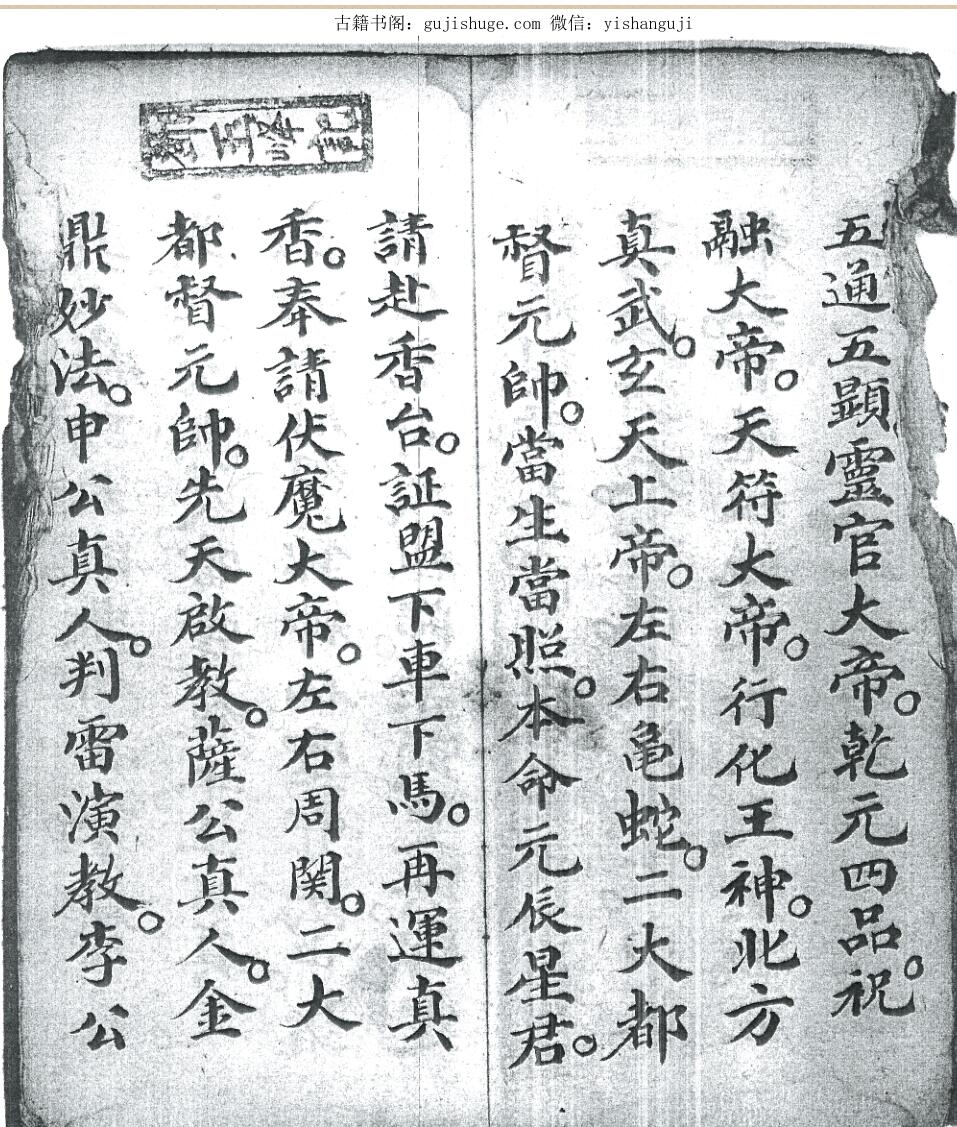 古籍书阁：gujishuge.com 微信：yishanguji
五通五顕靈官大帝。乾元四品。祝
融大帝。天符大帝。行化王神。北方
真武。玄天上帝。左右亀蛇。二大都
督元帥。當生當照。本命元辰星君。
請赴香台。証盟下車下馬。再運真
香。奉請伏魔大帝。左右周関。二大
都督元帥。先天啟教。薩公真人。金
鼎妙法。申公真人。判雷演教。李公